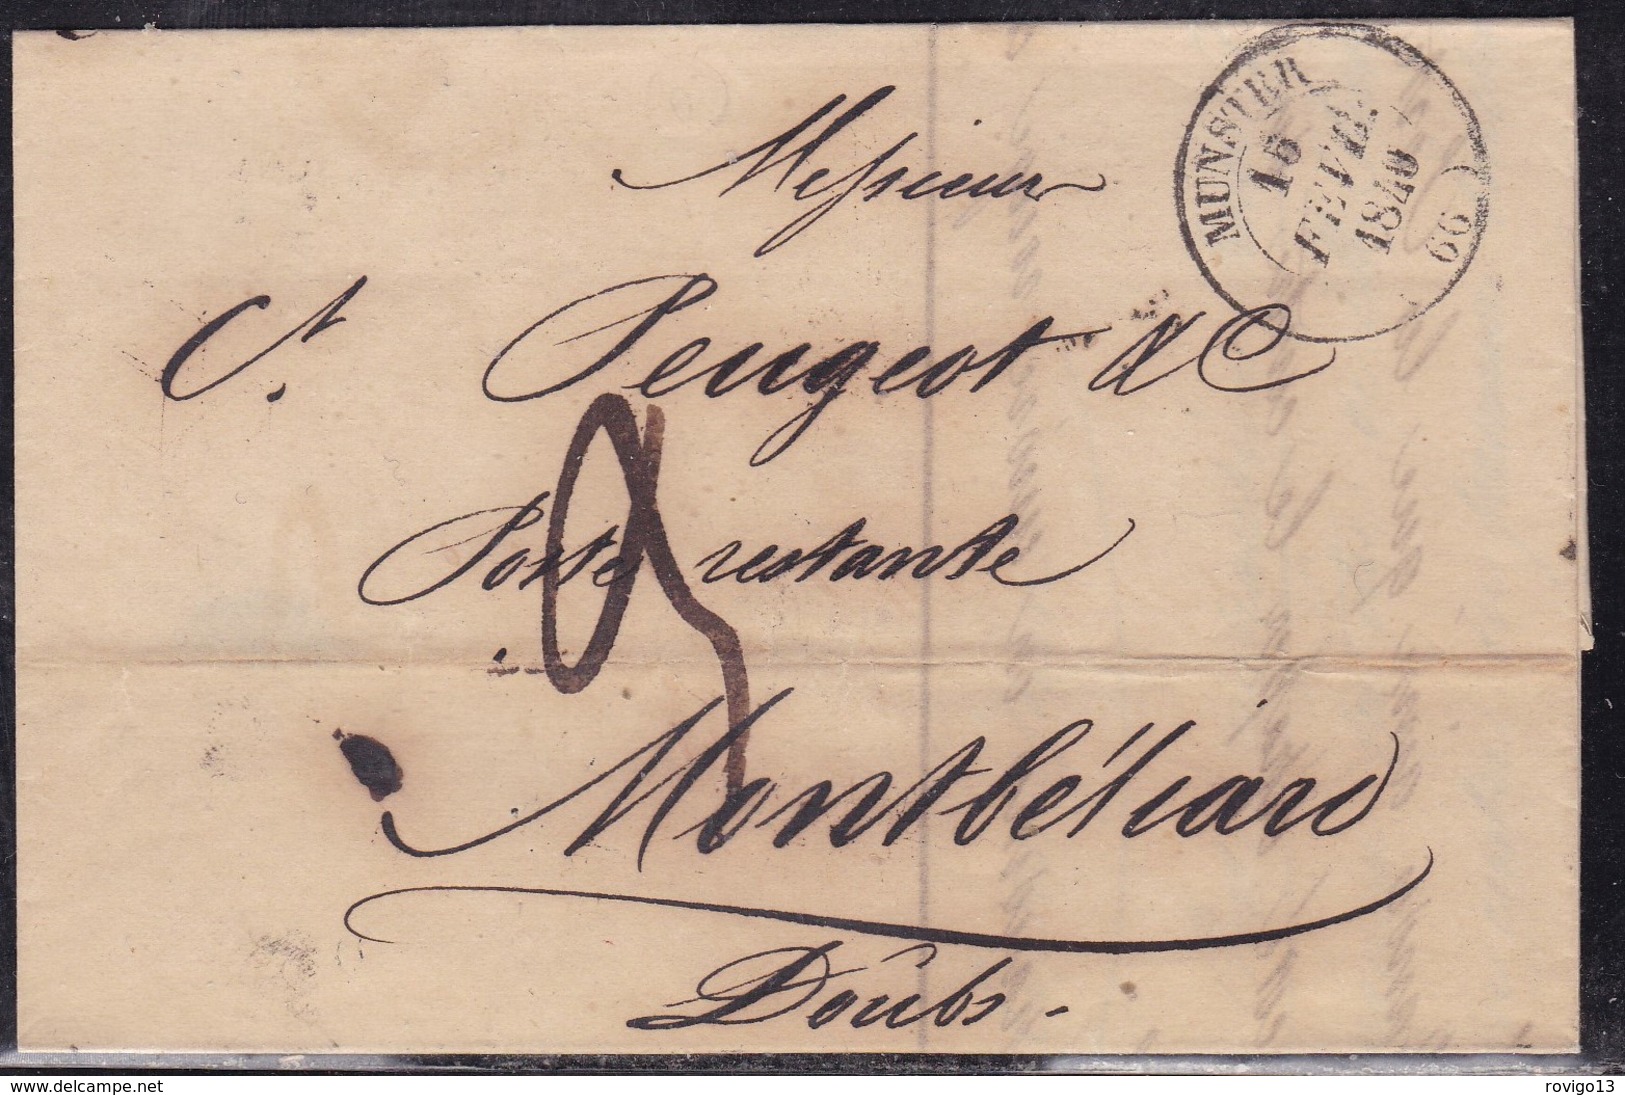 MUNSTER
15
FEVR.
1840
(66)
Messieurs
Ct. Peugeot & C
Poste restante
Montbéliard
Doubs.
www.delcampe.net
rovigo13